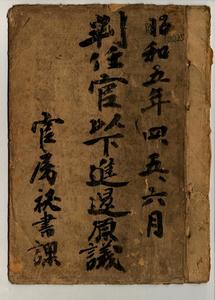 昭和五年四、五、六月
判任官以下進退原議
官房秘書課